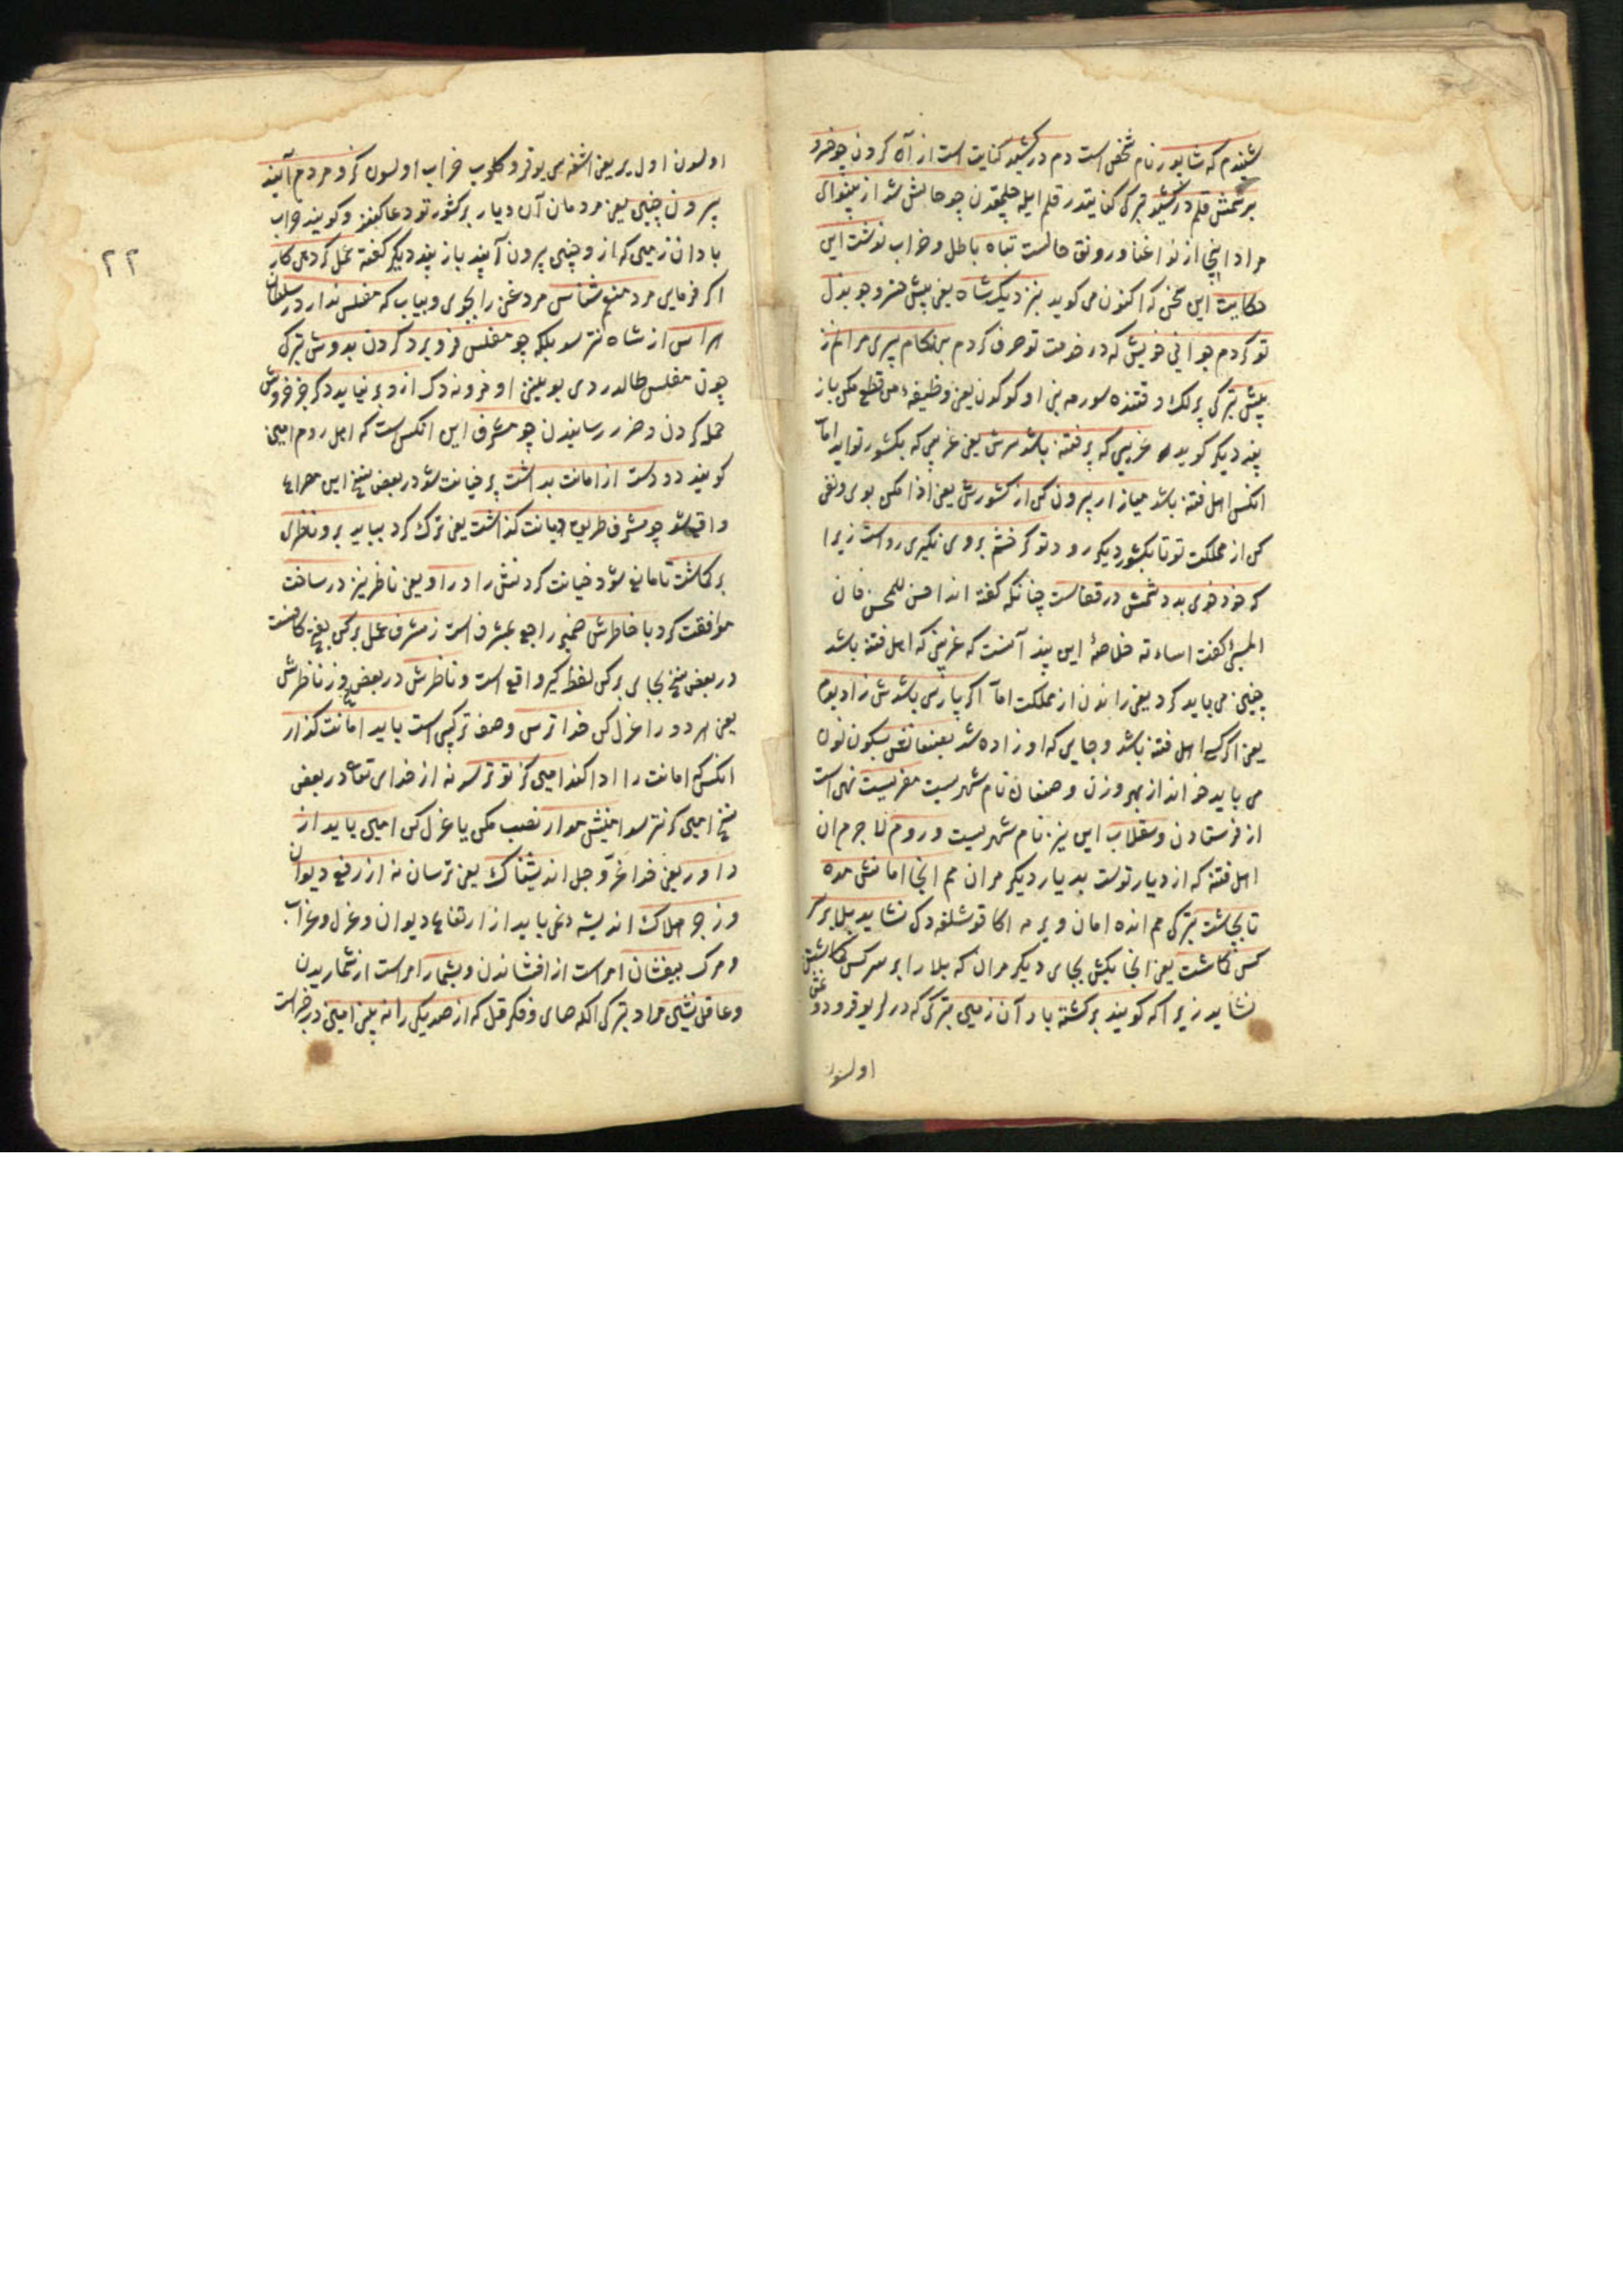 شنیدم که شاپور نام شخص است دم در کشید کنایت است از آه کردن چو خسرو
برسمش قلم در کشید ترکی کنایتدر قلم ایله چلمقدن چو حالش شد از بینوای
مراد اینجا از نوا غنا و رونق حالست تباه باطل و خراب نوشت این
حکایت این سخن که اکنون می کوید بنزدیک شاه یعنی پیش خسرو چو بذل
تو کردم جوانی خویش که در خدمت تو صرف کردم بهنکام پیری مرانم ز
پیش ترکی پیرلک وقتنده سورمه بنی اوکوکدن یعنی وظیفه من قطع مکن باز
پند دیکر کوید غریبی که پر فتنه باشد سرش یعنی غریبی که بکشور تو اید اما
انکس اهل فتنه باشد میازار بیرون کن از کشورش یعنی اذا مکن بوی و نفی
کن از مملکت تو تا بکشور دیکر رود تو کر خشم بروی نکیری رواست زیرا
که خود خوی بد دشمنش در قفاست چنانکه کفته اند احسن للمحسن فان
المسئ کفت اساءته خلاصهٔ این پند آنست که غریبی که اهل فتنه باشد
چنین می باید کرد یعنی راندن از مملکت اما اکر پارسی باشدش زاد بوم
یعنی اکر اهل فتنه باشد و جایی که او زاده شد بصنعانش بسکون نون
می باید خواند از بهر وزن و صنعان نام شهریست مفرست نهی است
از فرستادن و سقلاب این نیز نام شهریست و روم لا جرم ان
اهل فتنه که از دیار توست بدیار دیکر مران هم انجا امانش مده
تا بچاشت ترکی هم انده امان ویرمه اکا قوشلغه دک نشاید بلا بر سر
کس کماشت یعنی انجا بکش بجای دیکر مران که بلا را بر سر کس کماشتن
نشاید زیرا که کویند برکشته باد آن زمین ترکی که درلر یوقرو دونمش
اولسون
٢٢
اولسون اول یر یعنی اشغه سی یوقرو کلوب خراب اولسون کزو مردم آیند
بیرون چنین یعنی مردمان آن دیار بر کشور تو دعا کنند و کویند خراب
باد ان زمین که از و چنین بیرون آیند باز پند دیکر کفته عمل کر دهی کار
اکر فرمایی مرد منعم شناس مرد غنی را بجوی و بیاب که مفلس ندارد ز سلطان
هراس از شاه نترسد بلکه چو مفلس فرو برد کردن بدوش ترکی
چون مفلس طالدردی بوینینی اوموزنه دک ازو بر نیاید دکر جز خروش
حمله کردن و ضرر رسانیدن چو مشرف این انکس است که اهل روم امین
کویند دو دست از امانت بداشت پر خیانت شد در بعض نسخ این مصراع
واقع شد چو مشرف طریق دیانت کذاشت یعنی ترک کرد بباید برو ناظری
برکماشت تا مانع شود خیانت کردنش را ور او یعنی ناظر نیز در ساخت
موافقت کرد با خاطرش ضمیر راجع بمشرف است ز مشرف عمل برکن
در بعض نسخ بجای برکن لفظ کیر واقع است و ناظرش در بعض نسخ وز ناظرش
یعنی هر دو را عزل کن خدا ترس وصف ترکیبی است باید امانت کذار
انکس که امانت را ادا کند امین کز تو ترسد نه از خدای تعالی در بعض
نسخ امین کز نترسد امینش مدار نصب مکن یا عزل کن امین باید از
داور یعنی خدا عزّ و جل اندیشناک یعنی ترسان نه از رفع دیوان
و زجر و هلاک اندیشه نمی باید از ارتفاع دیوان و عزل و عذاب
و مرک بیفشان امر است از افشاندن و بشمار امر است از شماریدن
و عاقل نشین مراد ترکی اکله های و فکر قل که از صد یکی را نه بینی امین در خراست